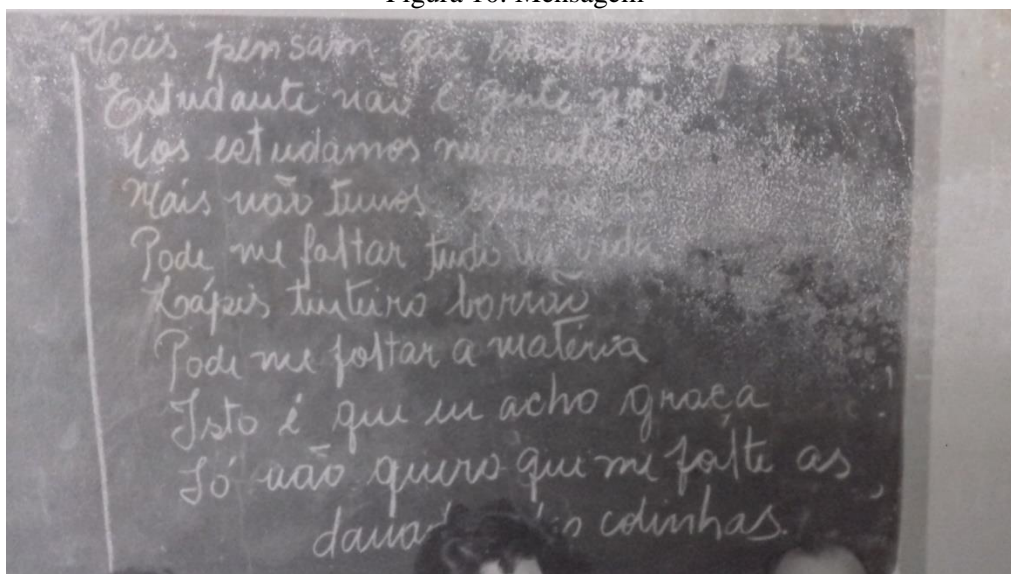 Figura 10: Mensagem
Vocês pensam que estudante é gente
Estudante não é gente não
Nos estudamos num
Mais não temos
Pode me faltar tudo na vida
Lápis tinteiro borrão
Pode me faltar a materia
Isto é que eu acho graça
Só não quero que me falte as
colinhas.